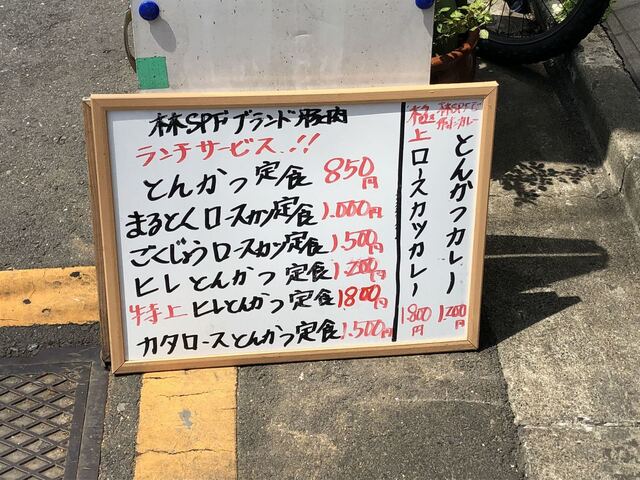 林SPFブランド豚肉
ランチサービス!!
とんかつ定食 850円
まるとんロースカツ定食 1.000円
ごくじょうロースカツ定食 1.500円
ヒレとんかつ定食 1.200円
特上ヒレとんかつ定食 1800円
カタロースとんかつ定食 1.500円
林SPFで作ったカレー
とんかつカレー 1200円
極上ロースカツカレー 1800円